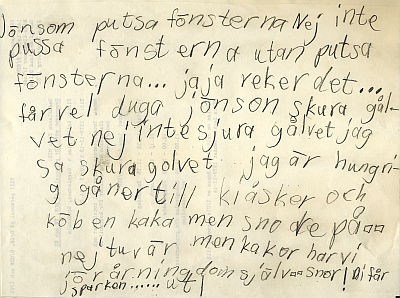 Jönsom putsa fönsterna Nej inte
pussa fönsterna utan putsa
fönsterna... jaja reker det...
får vel duga jönson skura gål-
vet nej inte sjura gålvet jag
sa skura golvet jag är hungri-
g gå ner till kiåsker och
köb en kaka men sno dre på
nej tuvär men kakor har vi
för årning dom själv snor! Di får
sparken...... ut!